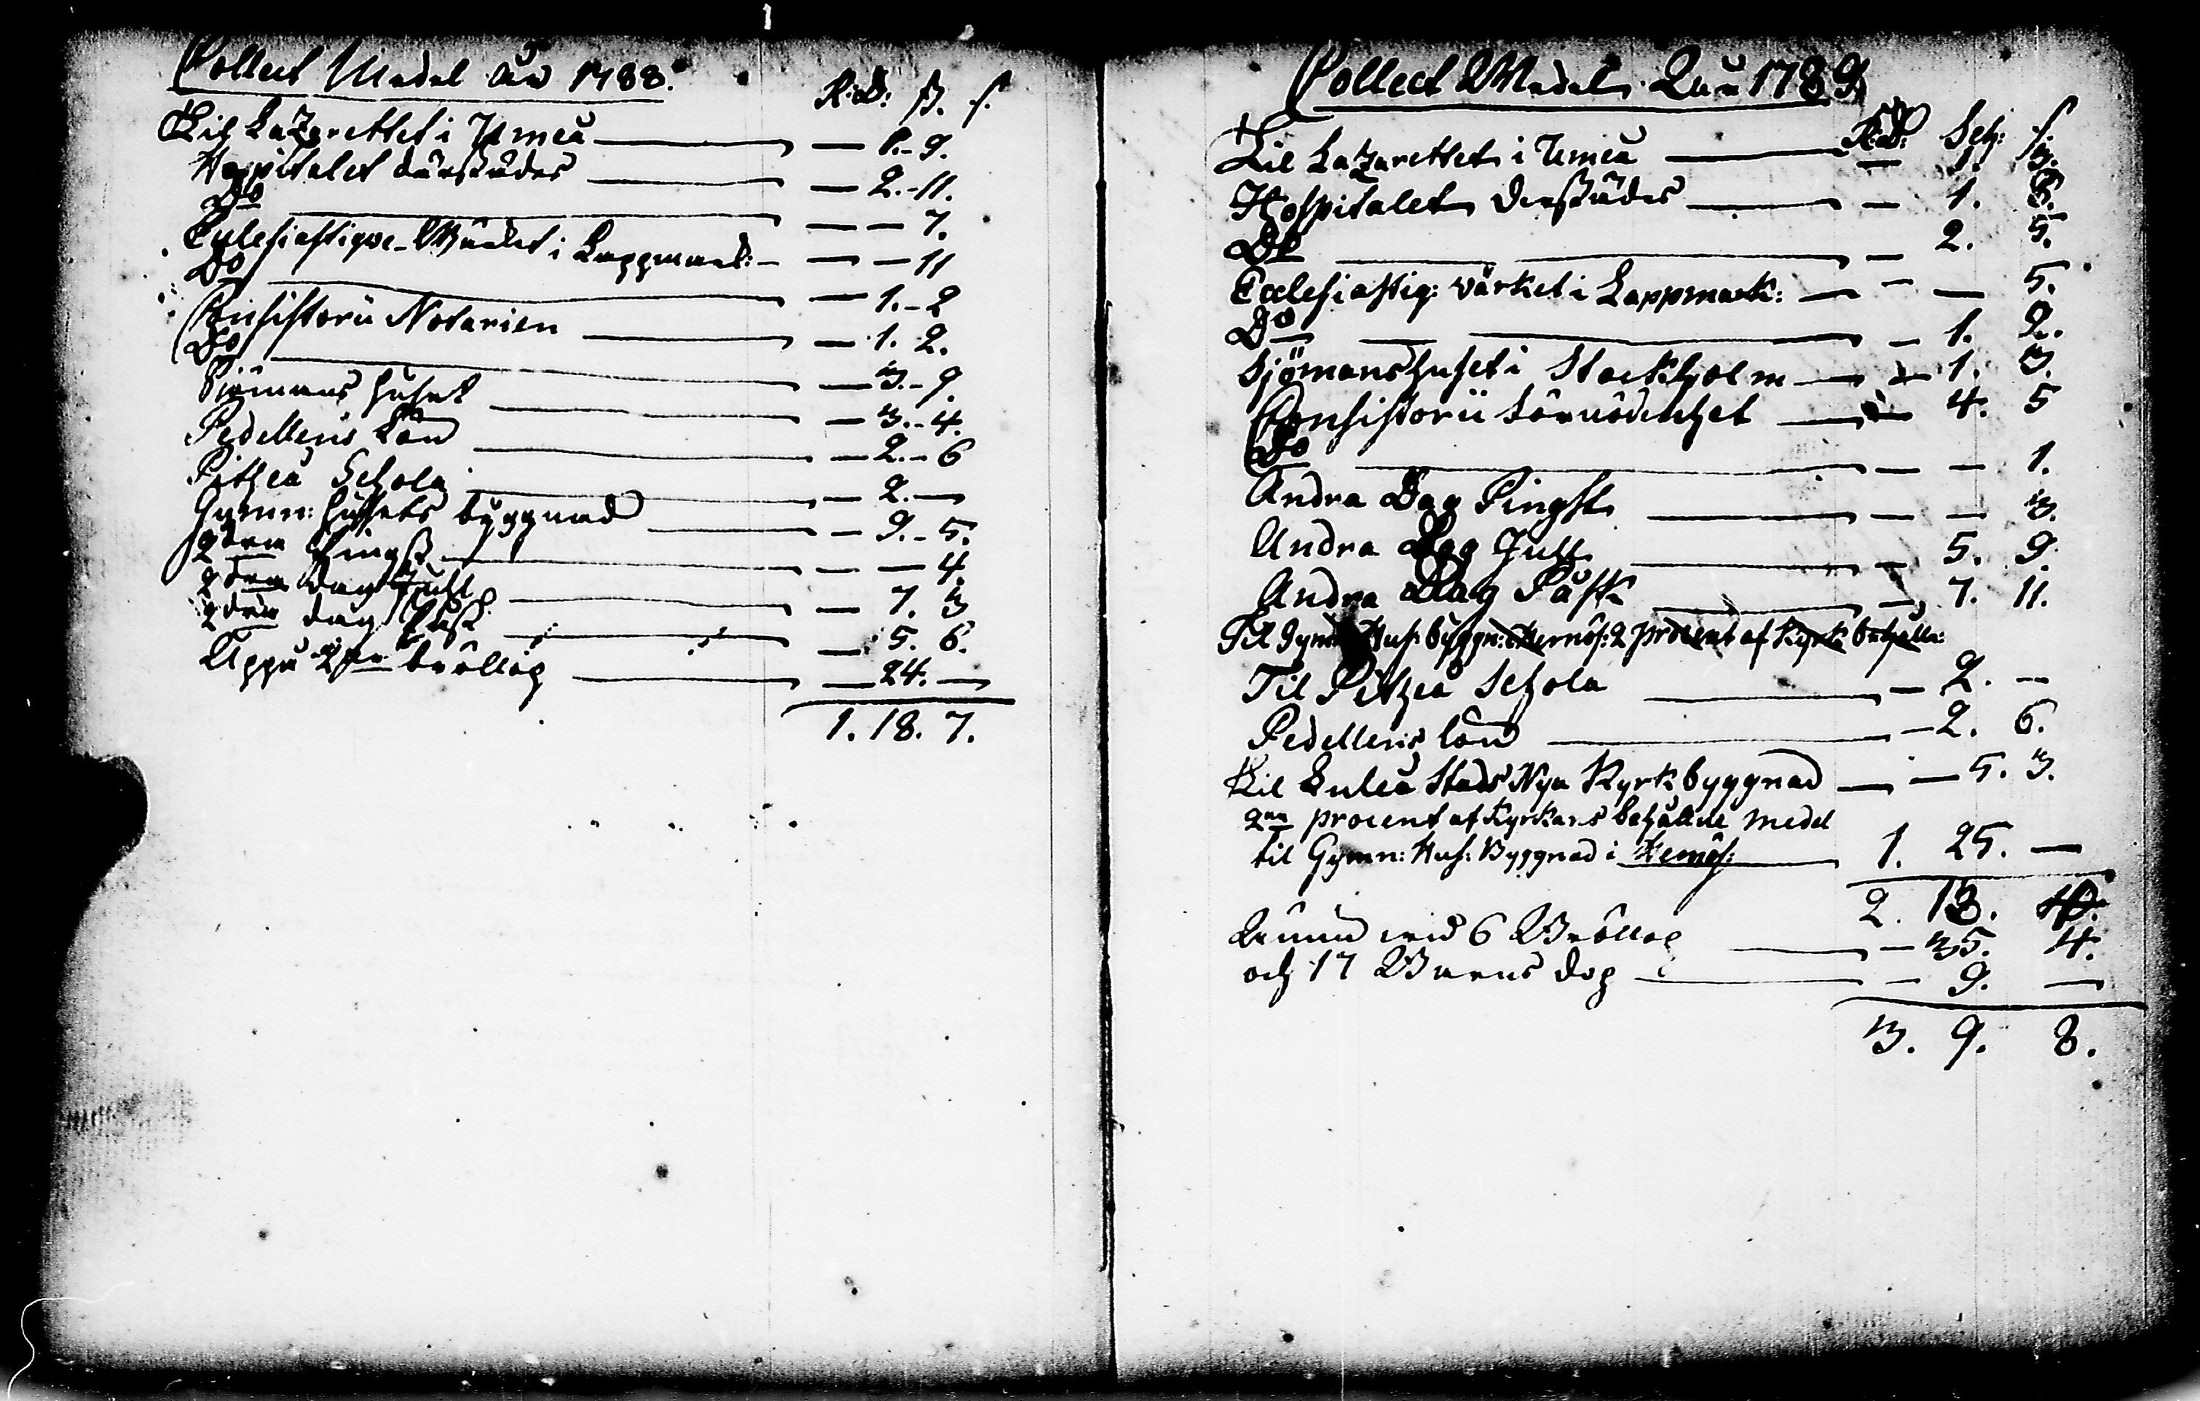 Collect Medel år 1788.
R:d: ß. f.
Til Lazarettet i Umeå — 1.-9.
Hospitalet därstädes — 2.-11.
Do — — 7.
Eclesiastiqve-Wärket i Lappmark:- — — 11
Do — 1.-2
Consistorii Notarien — 1. 2.
Do — 3.-9.
Sjömans huset — 3.-4.
Pedellens Lön — 2.-6
Pitheå Schola — 2. —
Gymn: hussets byggnad — 9.-5.
2dra Pingst — — 4.
2dra dag Juhl — 7. 3
2dra dag Påsk — 5. 6.
Uppå bröllop — 24. —
1. 18. 7.
Collect Medel 1789
R:d: Sch: f.
Til Lazarettet i Umeå — 1. 3.
Hospitalet derstädes — 1. 8.
Do — 2. 5.
Ecclesiastiq: värket i Lappmark: — — 5.
Do — 1. 2.
Sjömanshuset i Stockholm — 1. 3.
Consistorii — 4. 5
Do — — 1.
Andra Dag Pingst — — 3.
Andra Dag Jull — 5. 9.
Andra Dag Påsk — 7. 11.
Til Gymn: Hus: byggn: Hernös: 2 procent af Kyrk behålln:
Til Pitheå Schola — 2. —
Pedellens lön — 2. 6.
Til Luleå Stads Nya Kyrkbyggnad — 5. 3.
2ne procent af Kyrkans behållne medel
til Gymn: Hus: Byggnad i Hernös: 1. 25. —
2. 13. 4.
vid 6 Bröllop — 35. 4.
och 17 Barns dop — 9. —
3. 9. 8.